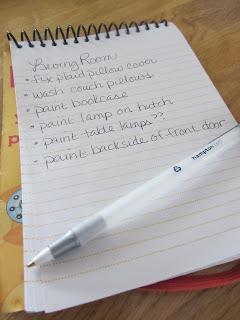 Living Room
• fix plaid pillow cover
• wash couch pillows
• paint bookcase
• paint lamp on hutch
• paint table lamps??
• paint backside of front door
hampton